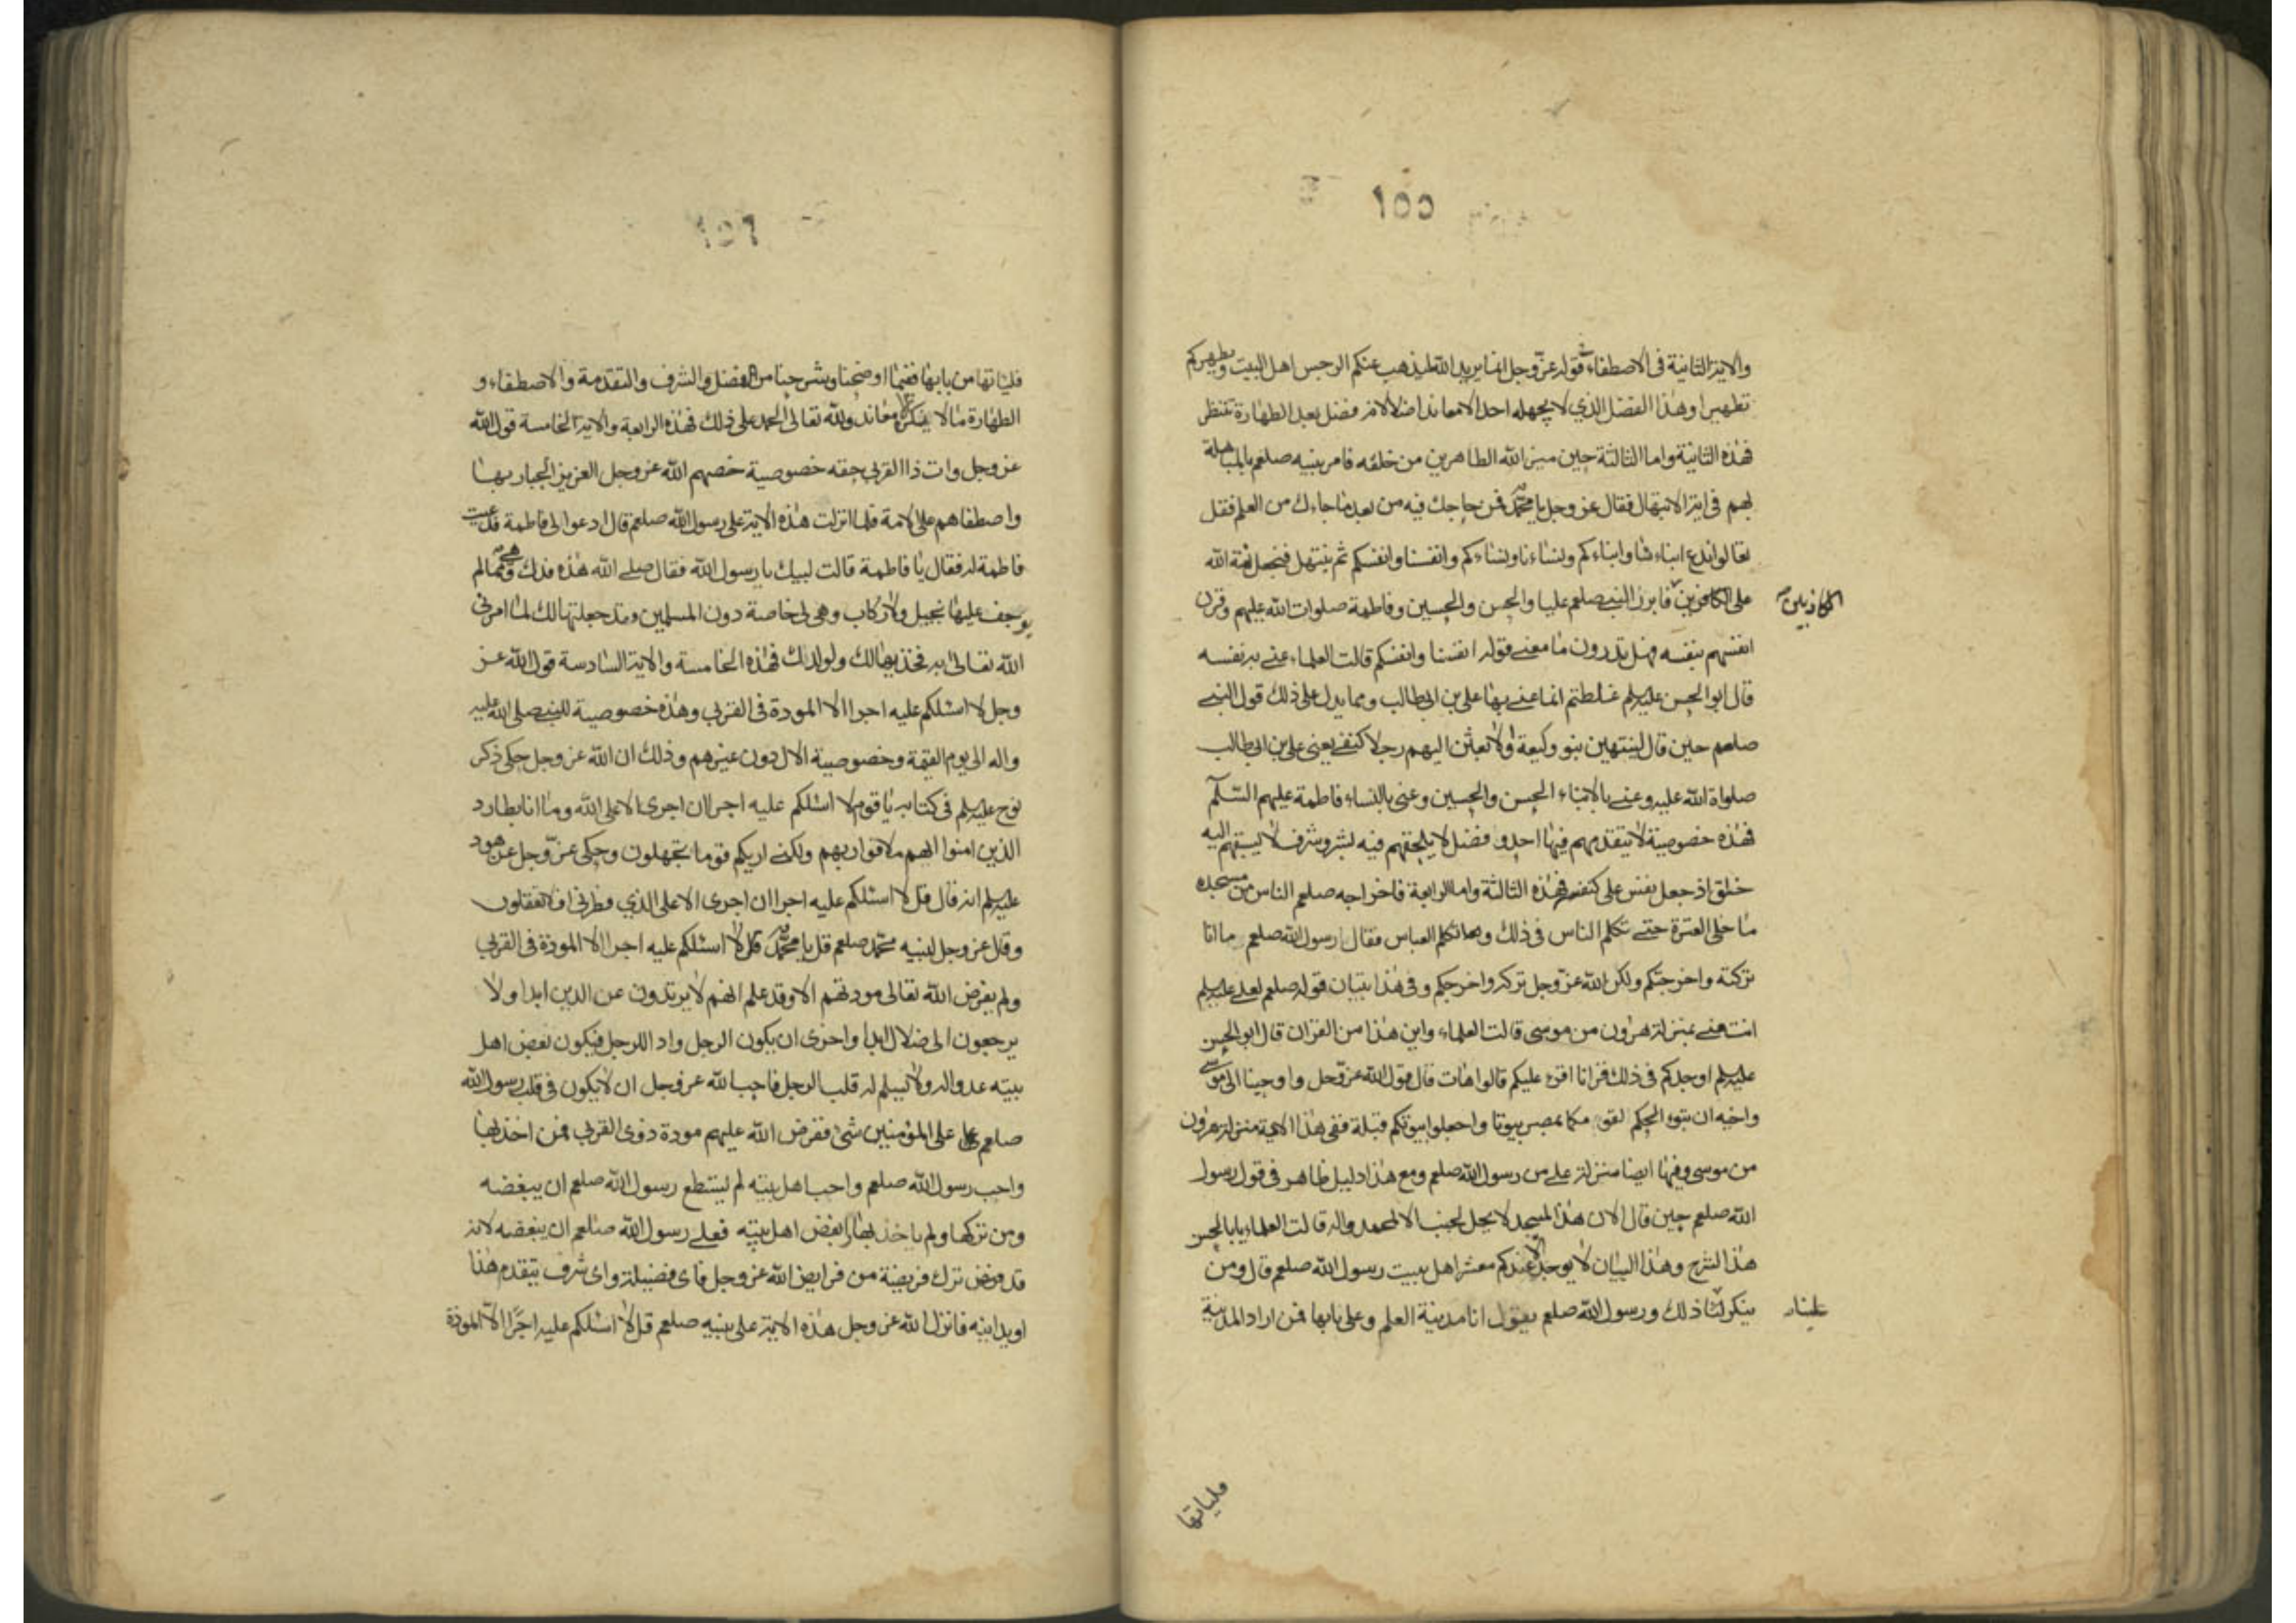 ١٥٥
والاية الثانية فى الاصطفاء قوله عزّ وجل انما يريد الله ليذهب عنكم الرجس اهل البيت ويطهركم
تطهيرا وهذا الفضل الذي لا يجهله احد الا معاند اضلالا فضل بعد الطهارة تنتظر
فهذه الثانية واما الثالثة حين ميز الله الطاهرين من خلقه فامر نبيه صلعم بالمباهلة
بهم فى اية الابتهال فقال عز وجل يا محمّد فمن حاجك فيه من بعد ما جاءك من العلم فقل
تعالوا ندع ابناءنا وابناءكم ونساءنا ونساءكم وانفسنا وانفسكم ثم نبتهل فنجعل لعنة الله
على الكافرين فابرز النبي صلعم عليا والحسن والحسين وفاطمة صلوات الله عليهم وقرن
الكاذبين
انفسهم بنفسه فهل تدرون ما معنى قوله انفسنا وانفسكم قالت العلماء عنى به نفسه
قال ابو الحسن عليه السلم غلطتم انما عنى بها على بن ابيطالب ومما يدل على ذلك قول النبي
صلعم حين قال لينتهين بنو وكيعة او لابعثن اليهم رجلا كنفسى يعنى على بن ابى طالب
صلواة الله عليه وعنى بالابناء الحسن والحسين وعنى بالنساء فاطمة عليهم السّلم
فهذه خصوصية لا يتقدمهم فيها احد وفضل لا يلحقهم فيه بشر وشرف لا يسبقهم اليه
خلق اذ جعل نفس على كنفسه فهذه الثالثة واما الرابعة فاخراجه صلعم الناس من مسجده
ما خلى العترة حتى تكلم الناس فى ذلك وتكلم العباس فقال رسول الله صلعم ما انا
تركته واخرجتكم ولكن الله عزّ وجل تركه واخرجكم وفى هذا تبيان قوله صلعم لعلى عليه السلم
انت منى بمنزلة هرون من موسى قالت العلماء واين هذا من القران قال ابو الحسن
عليه السلم اوجدكم فى ذلك قرانا اقرء عليكم قالوا هات قال قول الله عزّ وجل واوحينا الى موسى
واخيه ان تبوء الحكم لقومكما بمصر بيوتا واجعلوا بيوتكم قبلة ففى هذا الاية منزلة هرون
من موسى وفيها ايضا منزلة على من رسول الله صلعم ومع هذا دليل ظاهر فى قول رسول
الله صلعم حين قال الان هذا المسجد لا يحل لجنب الا لمحمد واله قالت العلماء يابا الحسن
هذا الشرح وهذا البيان لا يوجد الا عندكم معشر اهل بيت رسول الله صلعم قال ومن
ينكر لنا ذلك ورسول الله صلعم يقول انا مدينة العلم وعلى بابها فمن اراد المدينة
فلياتها
١٥٦
فلياتها من بابها ففيما اوضحنا وشرحنا من الفضل والشرف والتقدمة والاصطفاء و
الطهارة ما لا ينكره الا معاند ولله تعالى الحمد على ذلك فهذه الرابعة والاية الخامسة قول الله
عز وجل وات ذا القربى حقه خصوصية خصهم الله عز وجل العزيز الجبار بها
واصطفاهم على الامة فلما انزلت هذه الاية على رسول الله صلعم قال ادعوا لى فاطمة فدعيت
فاطمة له فقال يا فاطمة قالت لبيك يا رسول الله فقال صلى الله هذه فدك هى مما لم
يوجف عليها بخيل ولا ركاب وهى لى خاصة دون المسلمين وقد جعلتها لك لما امرنى
الله تعالى به فخذيها لك ولولدك فهذه الخامسة والاية السادسة قول الله عز
وجل لا اسئلكم عليه اجرا الا المودة فى القربى وهذه خصوصية للنبى صلى الله عليه
واله الى يوم القيمة وخصوصية الال دون غيرهم وذلك ان الله عز وجل حكى ذكر
نوح عليه السلم فى كتابه يا قوم لا اسئلكم عليه اجرا ان اجرى الا على الله وما انا بطارد
الذين امنوا انهم ملاقوا ربهم ولكنى اريكم قوما تجهلون وحكى عزّ وجل عن هود
عليه السلم انه قال قل لا اسئلكم عليه اجرا ان اجرى الا على الذي فطرنى افلا تعقلون
وقال عز وجل لنبيه محمّد صلعم قل يا محمّد قل لا اسئلكم عليه اجرا الا المودة فى القربى
ولم يفرض الله تعالى مودتهم الا وقد علم انهم لا يرتدون عن الدين ابدا ولا
يرجعون الى ضلال ابدا واخرى ان يكون الرجل وادا للرجل فيكون بعض اهل
بيته عدوا له ولا يسلم له قلب الرجل فاحب الله عز وجل ان لا يكون فى قلب رسول الله
صلعم على المؤمنين شئ ففرض الله عليهم مودة ذوى القربى فمن اخذ بها
واحب رسول الله صلعم واحب اهل بيته لم يستطع رسول الله صلعم ان يبغضه
ومن تركها ولم ياخذ بها وابغض اهل بيته فعلى رسول الله صلعم ان يبغضه لانه
قد فرض ترك فريضة من فرايض الله عز وجل فاى فضيلة واى شرف يتقدم هذا
او يدانيه فانزل الله عز وجل هذه الاية على نبيه صلعم قل لا اسئلكم عليه اجرًا الا المودة